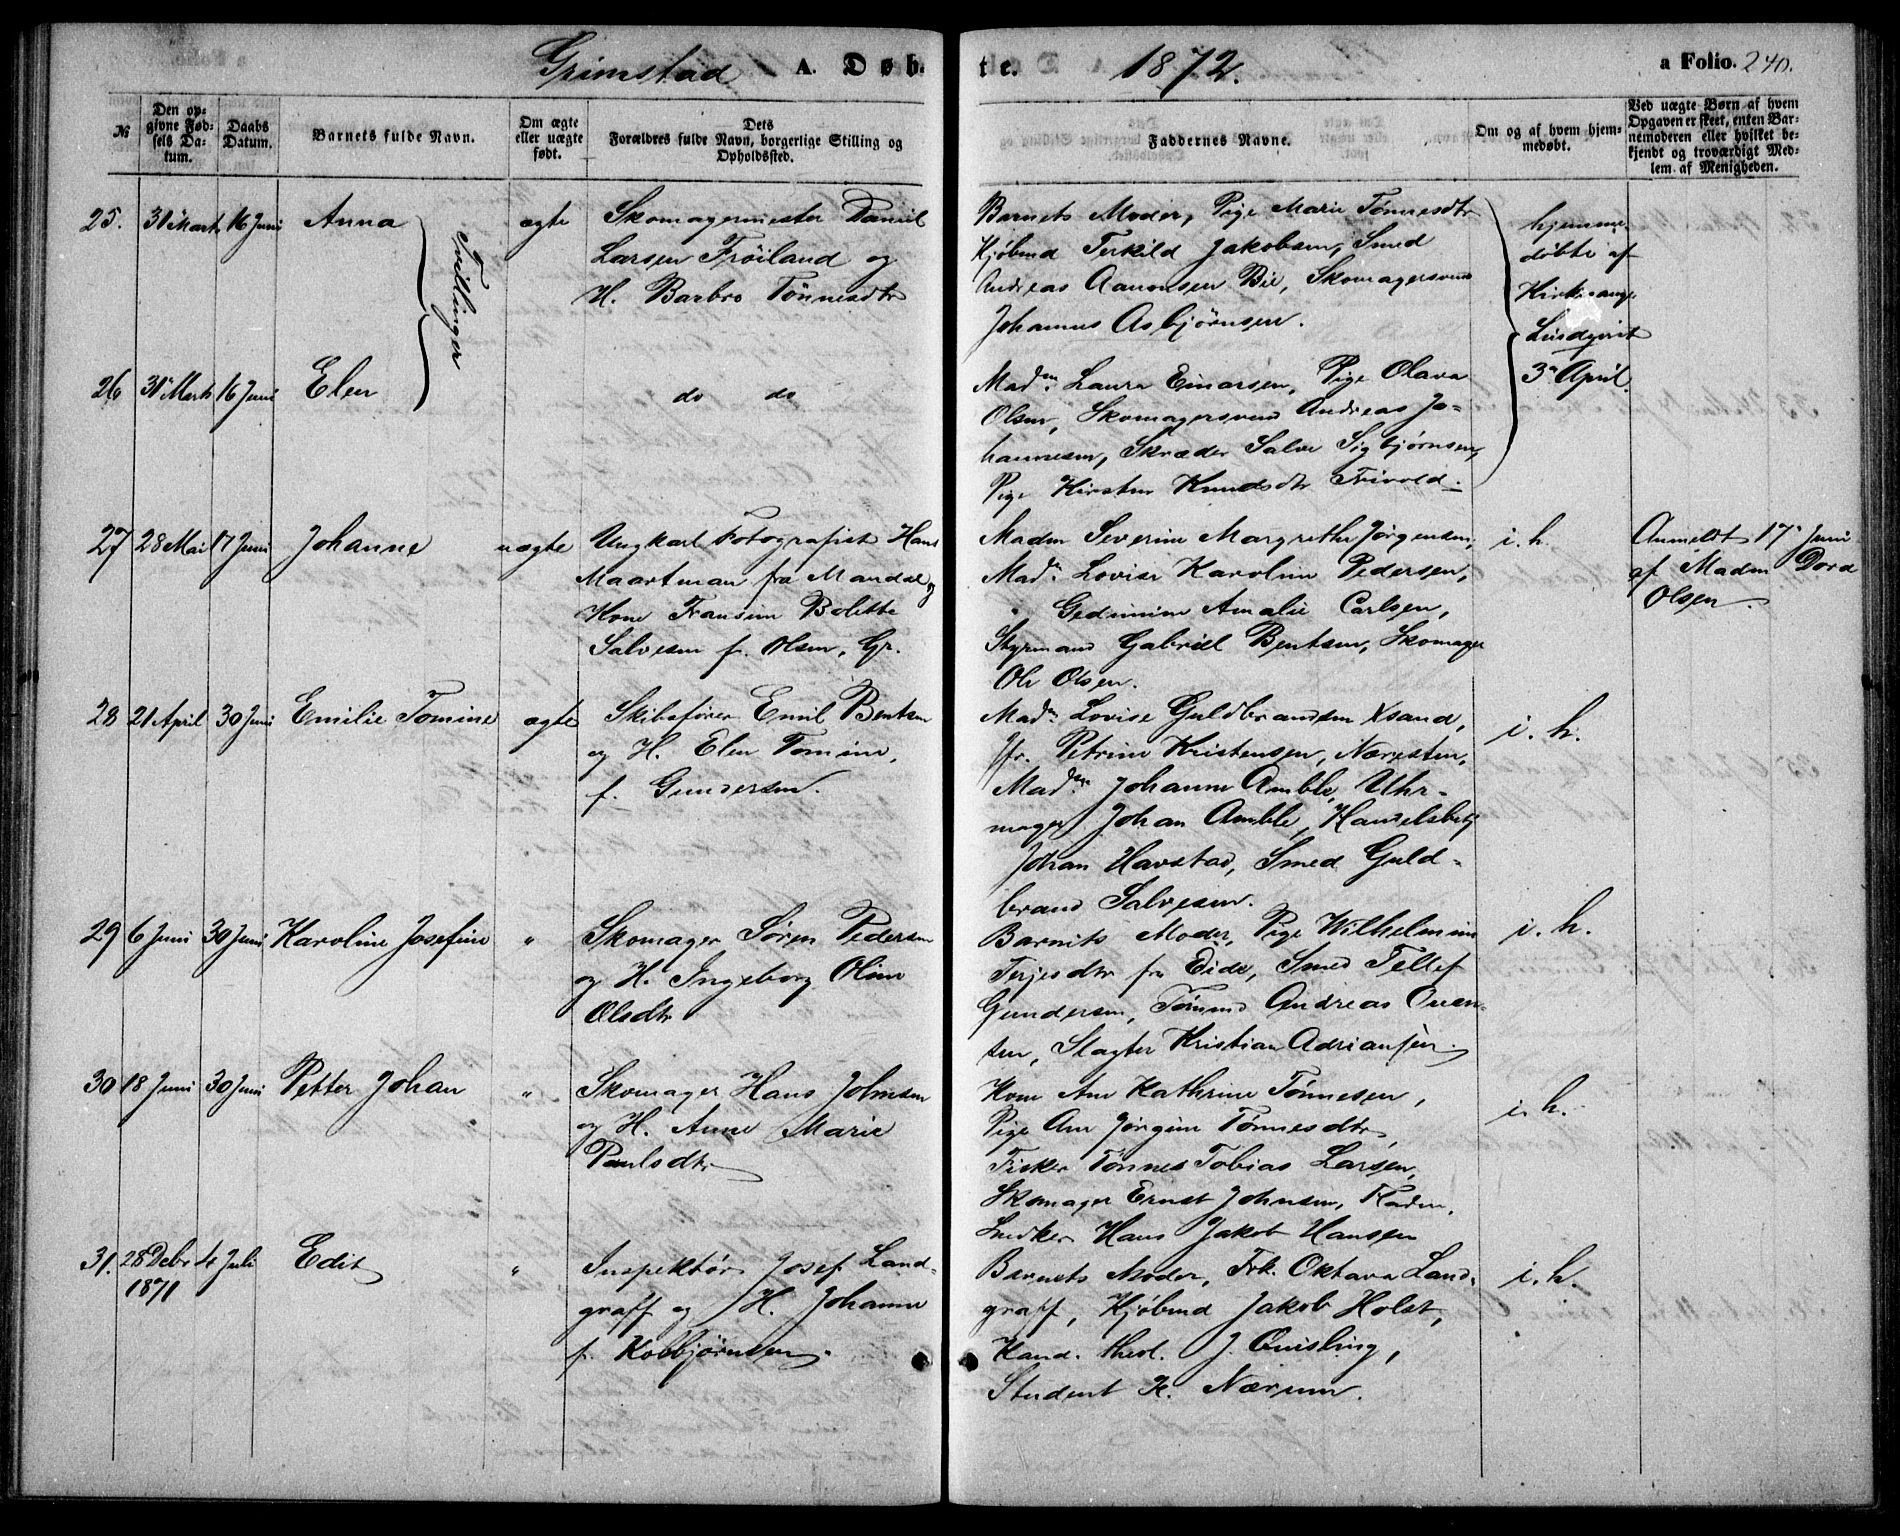 Grimstad A. Døb- te. 1872. a Folio. 240.
№
Den opgivne Fødsels Datum.
Daabs Datum.
Barnets fulde Navn.
Om ægte eller uægte født.
Dets Forældres fulde Navn, borgerlige Stilling og Opholdssted.
Faddernes Navne.
Om og af hvem hjemmedøbt.
Ved uægte Børn af hvem Opgaven er skeet, enten Barnemoderen eller hvilket bekjendt og troværdigt Medlem af Menigheden.
25. 31 Marts 16 Juni Anna ægte Skomagermester Daniel
Larsen Frøiland og
H. Barbro Tønnesdtr
Tvillinger
Barnets Moder, Pige Marie Tønnesdtr
Kjøbmd Terkild Jakobsen, Smed
Andreas Aanonsen Bie, Skomagersvend
Johannes Asbjørnsen.
hjemme-
døbte af
Kirkesanger
Lindqvist
3 April.
26 31 Marts 16 Juni Elen do do
Madm. Laura Einarsen, Pige Olava
Olsen, Skomagersvend Andreas Jo-
hannesen, Skræder Salve Sigbjørnsen,
Pige Kirsten Knudsdtr Frivold.
27 28 Mai 17 Juni Johanne uægte Ungkarl Fotografist Hans
Maartman fra Mandal og
Kone Fransine Bolette
Salvesen f. Olsen, Gr.
Madm Severine Margrethe Jørgensen,
Madm. Lovise Karoline Pedersen,
" Gedimine Amalie Carlsen,
Styrmand Gabriel Bentsen, Skomager
Ole Olsen.
i. h.
Anmeldt 17 Juni
af Madm Dord
Olsen.
28 21 April 30 Juni Emilie Tomine ægte Skibsfører Emil Bentsen
og H. Elen Tomine,
f. Gundersen.
Madm. Lovise Guldbrandsen Xsand,
Jfr. Petrine Kristensen, Næresten,
Madm. Johanne Amble, Uhr-
mager Johan Amble, Handelsbetj
Johan Havstad, Smed Guld-
brand Salvesen.
i. h.
29 6 Juni 30 Juni Karoline Josefine " Skomager Søren Pedersen
og H. Ingeborg Oline
Olsdtr
Barnets Moder, Pige Wilhelmine
Terjesdtr fra Eide, Smed Tellef
Gundersen, Tømmd Andreas Oven-
sen, Slagter Kristian Adriansen.
i. h.
30 18 Juni 30 Juni Petter Johan " Skomager Hans Johnsen
og H. Anne Marie
Paulsdtr
Kone Ane Kathrine Tønnesen,
Pige Ane Jørgine Tønnesdtr,
Fisker Tønnes Tobias Larsen,
Skomager Ernst Johnsen,
Snedker Hans Jakob Hansen
i. h.
31. 28 Debr 4 Juli Edit " Inspektør Josef Land-
1871
graff og H. Johanne
f. Kolbjørnsen.
Barnets Moder, Frk. Oktava Land-
graff, Kjøbmd Jakob Holst,
Kand. theol. J. Qvisling,
Student K. Nærum.
i. h.